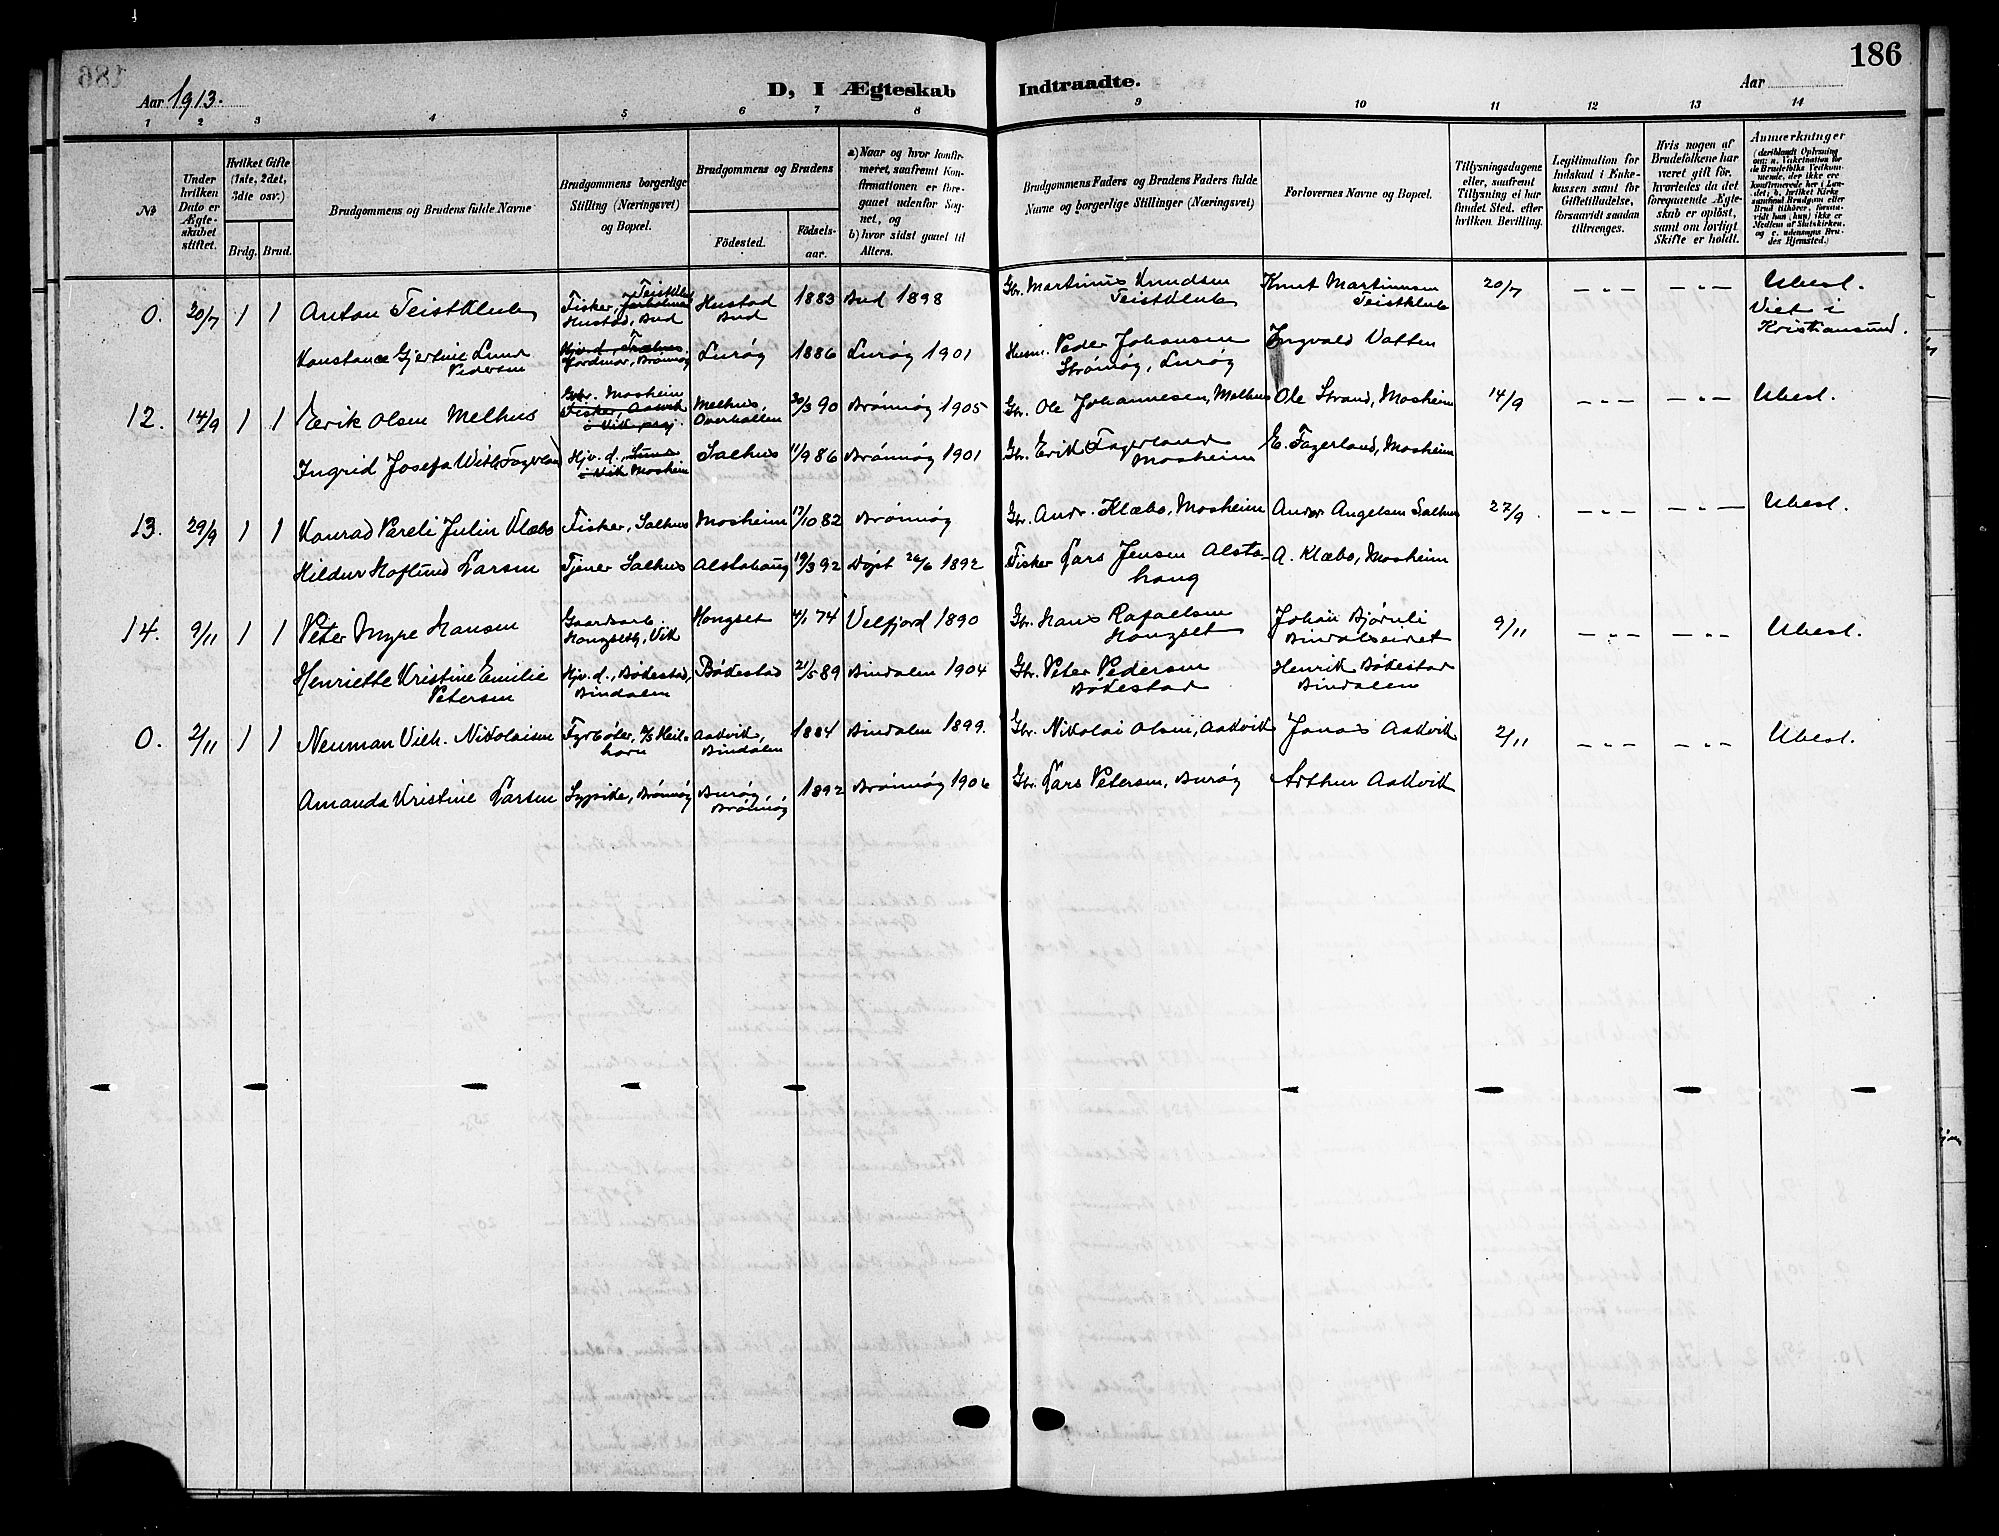 186
Aar 1913.
D, I Ægteskab Indtraadte.
Aar
1 2 3 4 5 6 7 8 9 10 11 12 13 14
No
Under hvilken Dato er Ægteskabet stiftet.
Hvilket Gifte (1ste, 2det, 3dte osv.)
Brdg. Brud.
Brudgommens og Brudens fulde Navne
Brudgommens borgerlige Stilling (Næringsvei) og Bopæl.
Brudgommens og Brudens
Fødested.
Fødselsaar.
a) Naar og hvor konfirmeret, saafremt Konfirmationen er foregaaet udenfor Sognet, og
b) hvor sidst gaaet til Alters.
Brudgommens Faders og Brudens Faders fulde Navne og borgerlige Stillinger (Næringsvei)
Forlovernes Navne og Bopæl.
Tillysningsdagene eller, saafremt Tillysning ei har fundet Sted, efter hvilken Bevilling.
Legitimation for Indskud i Enkekassen samt for Giftetilladelse, forsaavidt saadan tiltrænges.
Hvis nogen af Brudefolkene har været gift før, hvorledes da det foregaaende Ægteskab er opløst, samt om lovligt Skifte er holdt.
Anmærkninger
(deriblandt Oplysning om: a. Vakcination for de Brudefolks Vedkommende, der ikke er konfirmerede her i Landet; b. hvilket Kirkesamfund Brudgom eller Brud tilhører, forsaavidt han (hun) ikke er Medlem af Statskirken, og c. udensogns Brudes Hjemsted.)
0. 20/7 1 1 Anton Teistklub Fisker, Teistklub, Hustad, Bud Hustad Bud 1883 Bud 1898 Gbr. Martinus Knudsen Teistklub Knut Martinussen Teistklub 20/7 - „ - - „ - Ubesl. Viet i Kristiansund.
Konstance Gjertine Lund Pedersen Brønnøy Lurøy 1886 Lurøy 1901 Husm. Peder Johansen Strømøy, Lurøy Ingvald Vatten
12. 14/9 1 1 Erik Olsen Melhus Gbr. Mosheim Fisker, Aarvik i Vik psg. Melhus, Overhallen 30/3 90 Brønnøy 1905 Gbr. Ole Johannesen, Melhus Ole Strand, Mosheim 14/9 - „ - - „ - Ubesl.
Ingrid Josefa With Fagerland Hjv. d., i Vik Mosheim Salhus 11/9 86 Brønnøy 1901 Gbr. Erik Fagerland Mosheim E. Fagerland, Mosheim
13. 29/9 1 1 Konrad Pareli Julin Klæbo Fisker, Salhus Mosheim 17/10 82 Brønnøy Gbr. Andr. Klæbo, Mosheim Andor Angelsen Salhus 27/9 - „ - - „ - Ubesl.
Hildur Hoflund Larsen Tjener Salhus Alstahaug 19/3 92 Døpt 26/6 1892 Fisker Lars Jensen Alstahaug A. Klæbo, Mosheim
14. 9/11 1 1 Peter Myre Hansen Gaardsarb. Hongseth, Vik Hongset 4/1 74 Velfjord 1890 Gbr. Hans Rafaelsen Hongset Johan Bjørnli Bindalseidet 9/11 - „ - - „ - Ubesl.
Henriette Kristine Emilie Petersen Hjv. d., Bøkestad, Bindalen Bøkestad 21/5 89 Bindalen 1904 Gbr. Peter Pedersen Bøkestad Henrik Bøkestad Bindalen
0. 2/11 1 1 Neuman Vilh. Nikolaisen Fyrbøter, Heilhorn Aakvik, Bindalen 1884 Bindalen 1899. Gbr. Nikolai Olsen, Aakvik Jonas Aakvik 2/11 - „ - - „ - Ubesl.
Amanda Kristine Larsen Sypike, Brønnøy Burøy Brønnøy 1892 Brønnøy 1906 Gbr. Lars Petersen, Burøy Arthur Aakvik